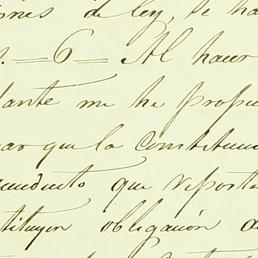 ones de ley, se ha
s. = 6 = Al hacer
lante me he propu
ar que la constituci
uediato que reporta
stituyen obligación d